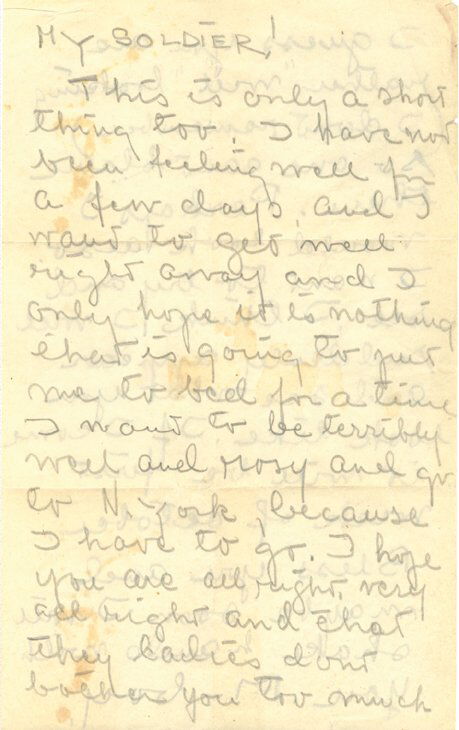 MY SOLDIER!
This is only a short
thing too. I have not
been feeling well for
a few days, and I
want to get well
right away and I
only hope it is nothing
that is going to put
me to bed for a time
I want to be terribly
well and rosy and go
to N. York, because
I have to go. I hope
you are all right, very
all right and that
they ladies dont
bother you too much